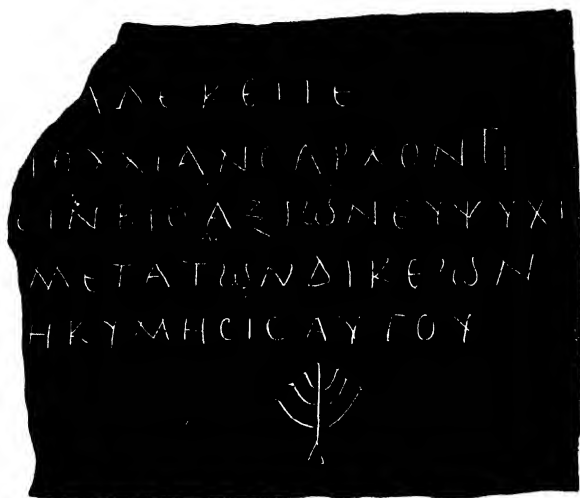 ΑΔΕ ΚΕΙΤΕ
ΙΟΥΧΙΑΝϹΑΡΧΟΝΤΙ
ϹΙΝΒΙΟϹΑΞΙΩΝΕΥΨΥΧΙ
ΜΕΤΑΤΩΝΔΙΚΕΩΝ
ΗΚΥΜΗϹΙϹΑΥΤΟΥ